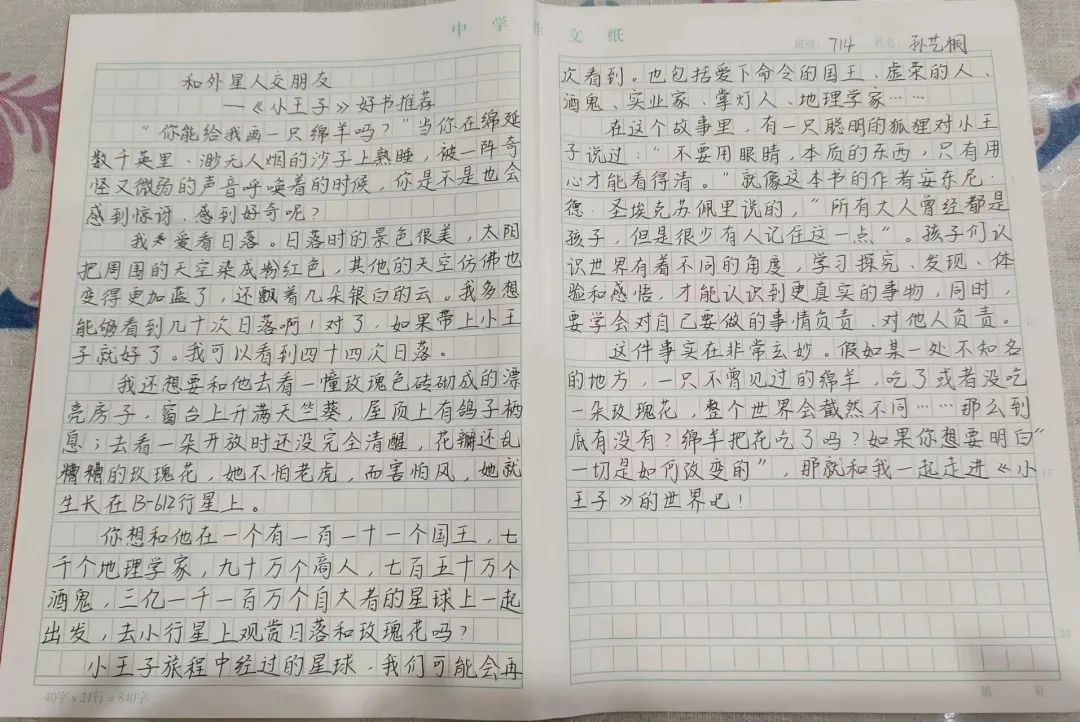 中学作文纸
班级：714 姓名：孙艺桐
和外星人交朋友
—《小王子》好书推荐
“你能给我画一只绵羊吗？”当你在绵延
数千英里、渺无人烟的沙子上熟睡，被一阵奇
怪又微弱的声音呼唤着的时候，你是不是也会
感到惊讶、感到好奇呢？
我爱看日落。日落时的景色很美，太阳
把周围的天空染成粉红色，其他的天空仿佛也
变得更加蓝了，还飘着几朵银白的云。我多想
能够看到几十次日落啊！对了，如果带上小王
子就好了。我可以看到四十四次日落。
我还想要和他去看一幢玫瑰色砖砌成的漂
亮房子，窗台上开满天竺葵，屋顶上有鸽子栖
息；去看一朵开放时还没完全清醒，花瓣还乱
糟糟的玫瑰花，她不怕老虎，而害怕风，她就
生长在B-612行星上。
你想和他在一个有一百一十一个国王，七
千个地理学家，九十万个商人，七百五十万个
酒鬼，三亿一千一百万个自大者的星球上一起
出发，去小行星上观赏日落和玫瑰花吗？
小王子旅程中经过的星球，我们可能会再
40字×21行=840字
次看到。也包括爱下命令的国王、虚荣的人、
酒鬼、实业家、掌灯人、地理学家……
在这个故事里，有一只聪明的狐狸对小王
子说过：“不要用眼睛，本质的东西，只有用
心才能看得清。”就像这本书的作者安东尼·
德·圣埃克苏佩里说的，“所有大人曾经都是
孩子，但是很少有人记住这一点”。孩子们认
识世界有着不同的角度，学习探究、发现、体
验和感悟，才能认识到更真实的事物，同时，
要学会对自己要做的事情负责、对他人负责。
这件事实在非常玄妙。假如某一处不知名
的地方，一只不曾见过的绵羊，吃了或者没吃
一朵玫瑰花，整个世界会截然不同……那么到
底有没有？绵羊把花吃了吗？如果你想要明白“
一切是如何改变的”，那就和我一起走进《小
王子》的世界吧！
5
10
15
20
第 页